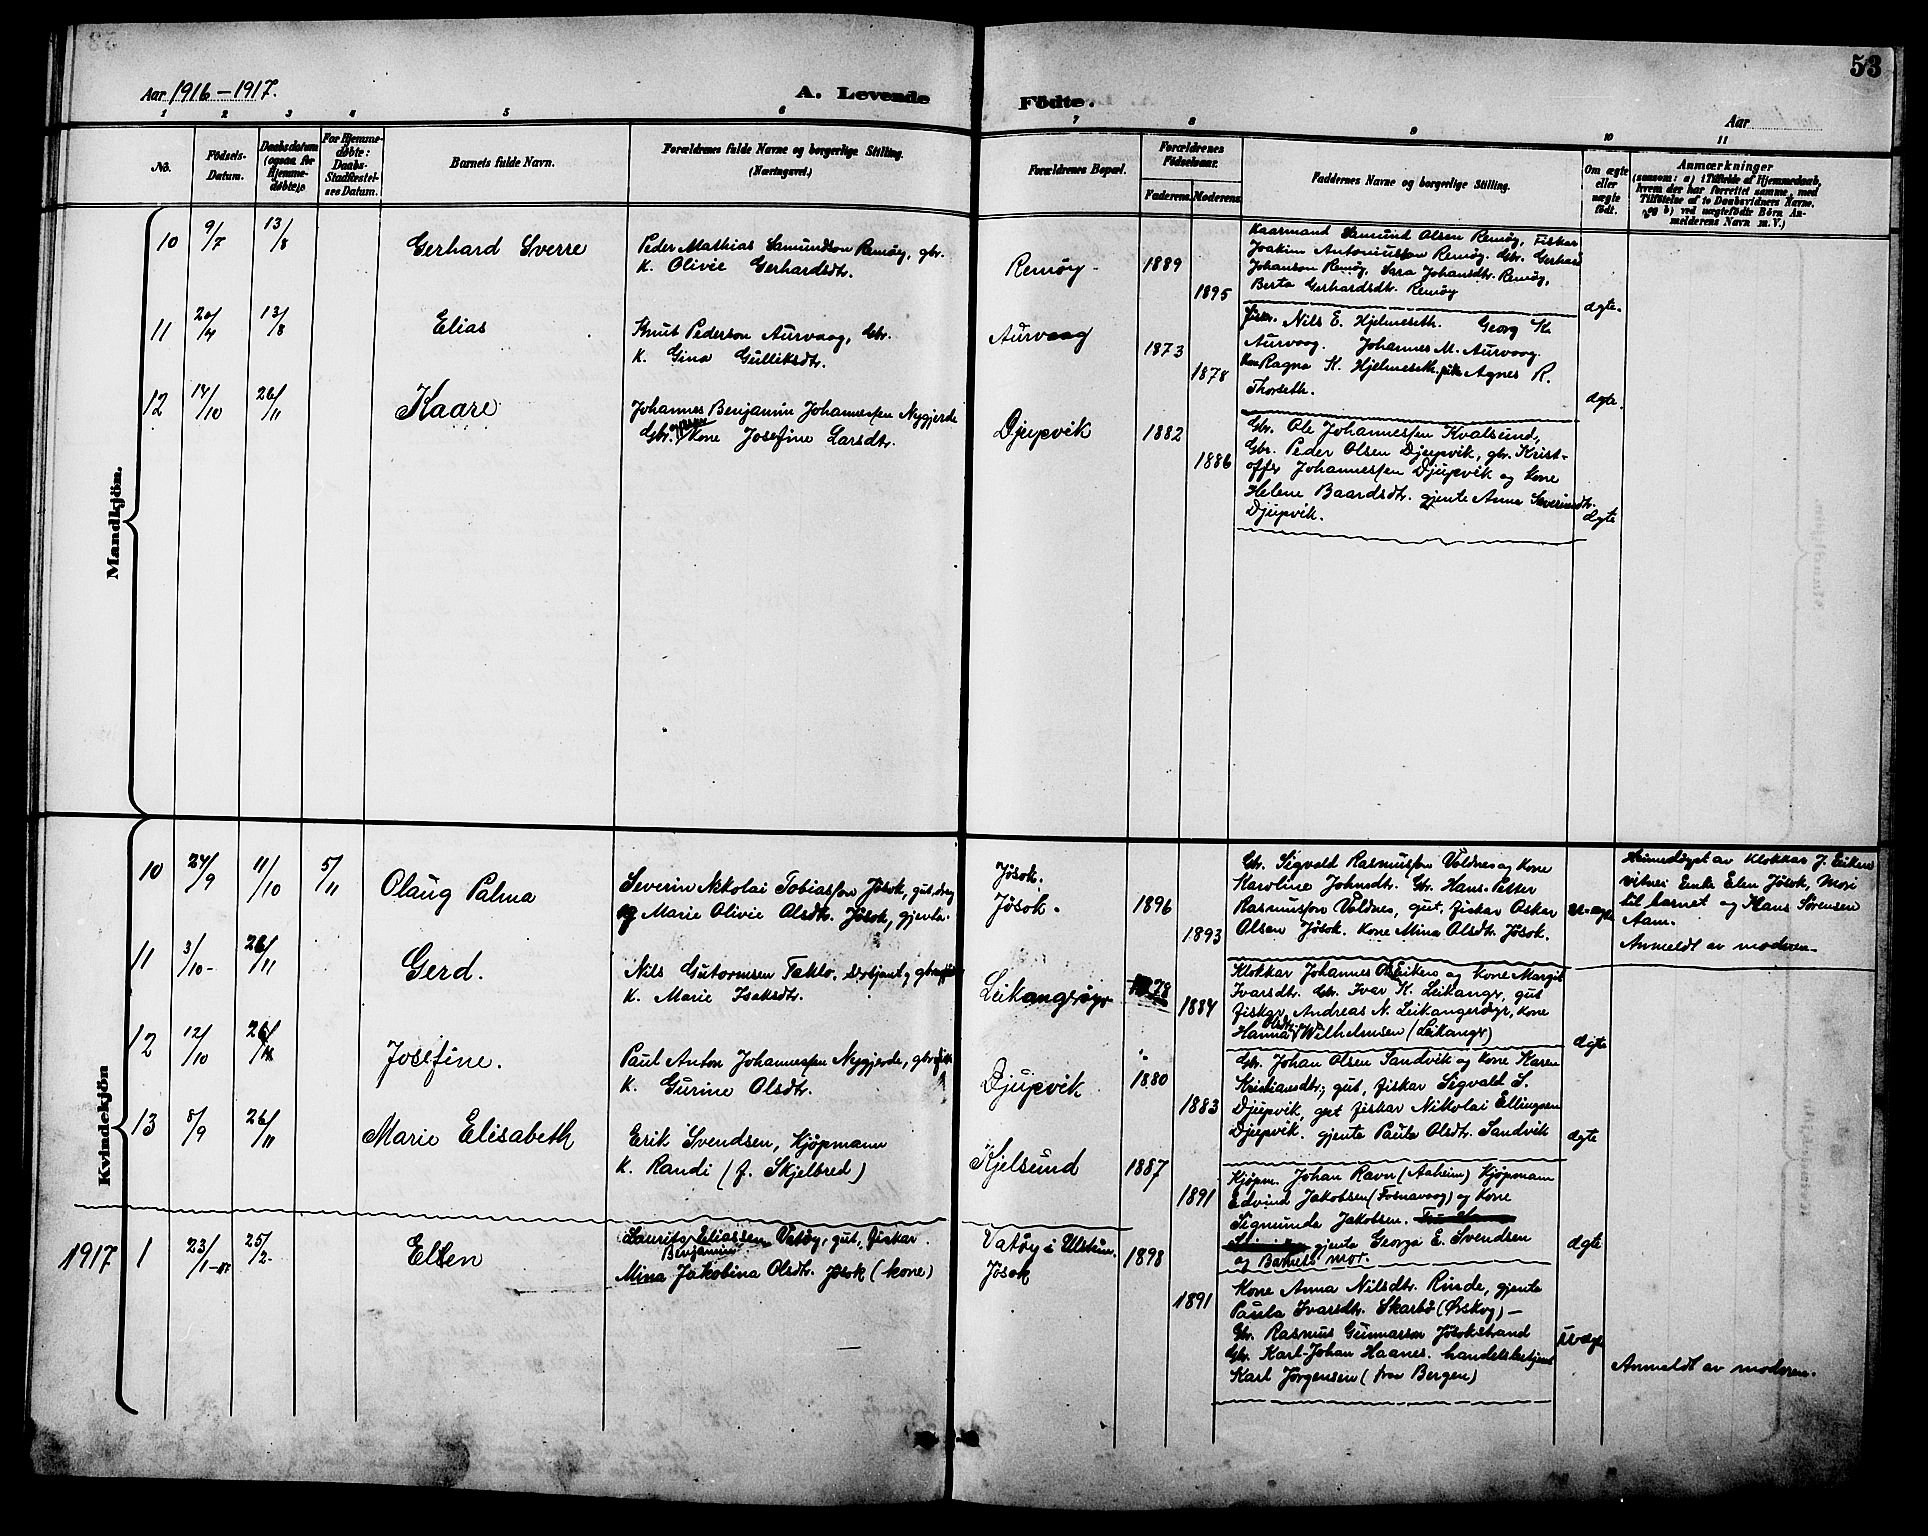 53
Aar 1916 - 1917.
A. Levende Födte.
Aar
1 2 3 4 5 6 7 8 9 10 11
No.
Födsels-
Datum.
Daabsdatum
(ogsaa for
Hjemme-
døbte).
For Hjemme-
døbte:
Daabs-
Stadfæstel-
ses Datum.
Barnets fulde Navn.
Forældrenes fulde Navne og borgerlige Stilling.
(Næringsvei.)
Forældrenes Bopæl.
Forældrenes
Födselsaar.
Faderens. Moderens.
Faddernes Navne og borgerlige Stilling.
Om ægte
eller
uægte
födt.
Anmærkninger
(saasom: a) i Tilfælde af Hjemmedaab,
hvem der har forrettet samme, med
Tilføielse af to Daabsvidners Navne,
og b) ved uægtefödte Börn An-
melderens Navn m. V.)
Mandkjön.
10 9/7 13/8 Gerhard Sverre
Peder Mathias Samundson Remöy, gbr.
K. Olivie Gerhardsdtr.
Remöy
1889
1895
Kaarmand Samund Olsen Remöy, Fiskar
Joakim Antoniusson Remöy. Gbr. Gerhard
Johanson Remöy, Sara Johansdtr. Remöy,
Berta Gerhardsdtr. Remöy
ægte.
11 20/4 13/8 Elias
Knut Pederson Aurvaag, Gbr.
K. Gina Gulliksdtr.
Aurvaag
1873
1878
Nils E. Hjelmeseth. Georg K.
Aurvaag. Johannes M. Aurvaag.
Ragna K. Hjelmeseth Agnes R.
Thorseth.
ægte.
12 14/10 26/11 Kaare
Johannes Benjamin Johannessen Nygjerde
Gbr. Kone Josefine Larsdtr.
Djupvik
1882
1886
Gbr. Ole Johannessen Kvalsund,
Gbr. Peder Olsen Djupvik, gbr. Krist-
offer Johannessen Djupvik og kone
Helene Baardsdtr. gjente Anna Severinsdtr.
Djupvik.
ægte
Kvindekjön
10 24/9 11/10 5/11 Olaug Palma
Severin Nikolai Tobiassen Jøsok, gut, dreg
og Marie Olivie Olsdtr. Jøsok, gjente
Jøsok.
Jøsok.
1896
1893
Gbr. Sigvald Rasmusson Voldnes og kone
Karoline Johnsdtr. Gbr. Hans-Petter
Rasmusson Voldnes, gut, fiskar Oskar
Olsen Jøsok. Kone Mina Olsdtr. Jøsok.
u-ægte
Heimedöpt av Klokkar J. Eikers
vitnei Enke Elen Jøsok, Mori
til barnet og Hans Sørensen
Aam.
Anmeldt av moderen.
11 3/10 26/11 Gerd.
Nils Gutormsen Taklo,
K. Marie Isaksdtr.
Leikangsøyr
1878
1884
Klokkar Johannes O. Eikers og Kone Margit
Ivarsdtr. Gbr. Ivar K. Leikangr, gut
fiskar, Andreas N. Leikangersöyr, kone
Hanna Wilhelmsen (Leikangr)
ægte
12 12/10 26/11 Josefine.
Paul Anton Johannessen Nygjerde,
K. Gurine Olsdtr.
Djupvik
1880
1883
Gbr. Johan Olsen Sandvik og kone Karen
Kristiansdtr; gut, fiskar Sigvald S.
Djupvik, gut fiskar Nikolai Ellingsen
Djupvik. gjente Paula Olsdtr. Sandvik
ægte
13 8/9 26/11 Marie Elisabeth
Erik Svendsen, Kjøpmann
K. Randi (f. Skjelbred)
Kjelsund
1887
1891
Kjøpm. Johan Ravn (Aaheim) Kjøpmann
Edvind Jakobsen (Fosnavaag) og Kone
Sigmunda Jakobsen.
gjente Georga E. Svendsen
og Barnets mor.
ægte
1917 1 23/1-17 25/2 Ellen
Laurits Benjamin Eliassen Vatöy, gut, fiskar.
Mina Jakobina Olsdtr. Jøsok (kone)
Vatöy i Ulstein.
Jøsok
1898
1891
Kone Anna Nilsdtr. Rinde, gjente
Paula Ivarsdtr. Skarbö (Ørskog) -
Gbr. Rasmus Gunnarson Jøsokstrand
Gbr. Karl-Johan Haanes. handelsbetjent
Karl Jørgensen (fra Bergen)
uægte
Anmeldt av moderen.